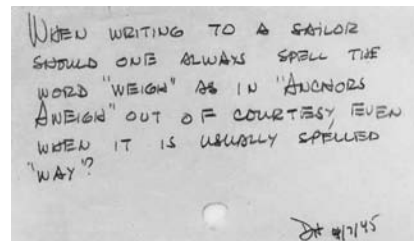 WHEN WRITING TO A SAILOR
SHOULD ONE ALWAYS SPELL THE
WORD "WEIGH" AS IN "ANCHORS
AWEIGH" OUT OF COURTESY, EVEN
WHEN IT IS USUALLY SPELLED
"WAY"?